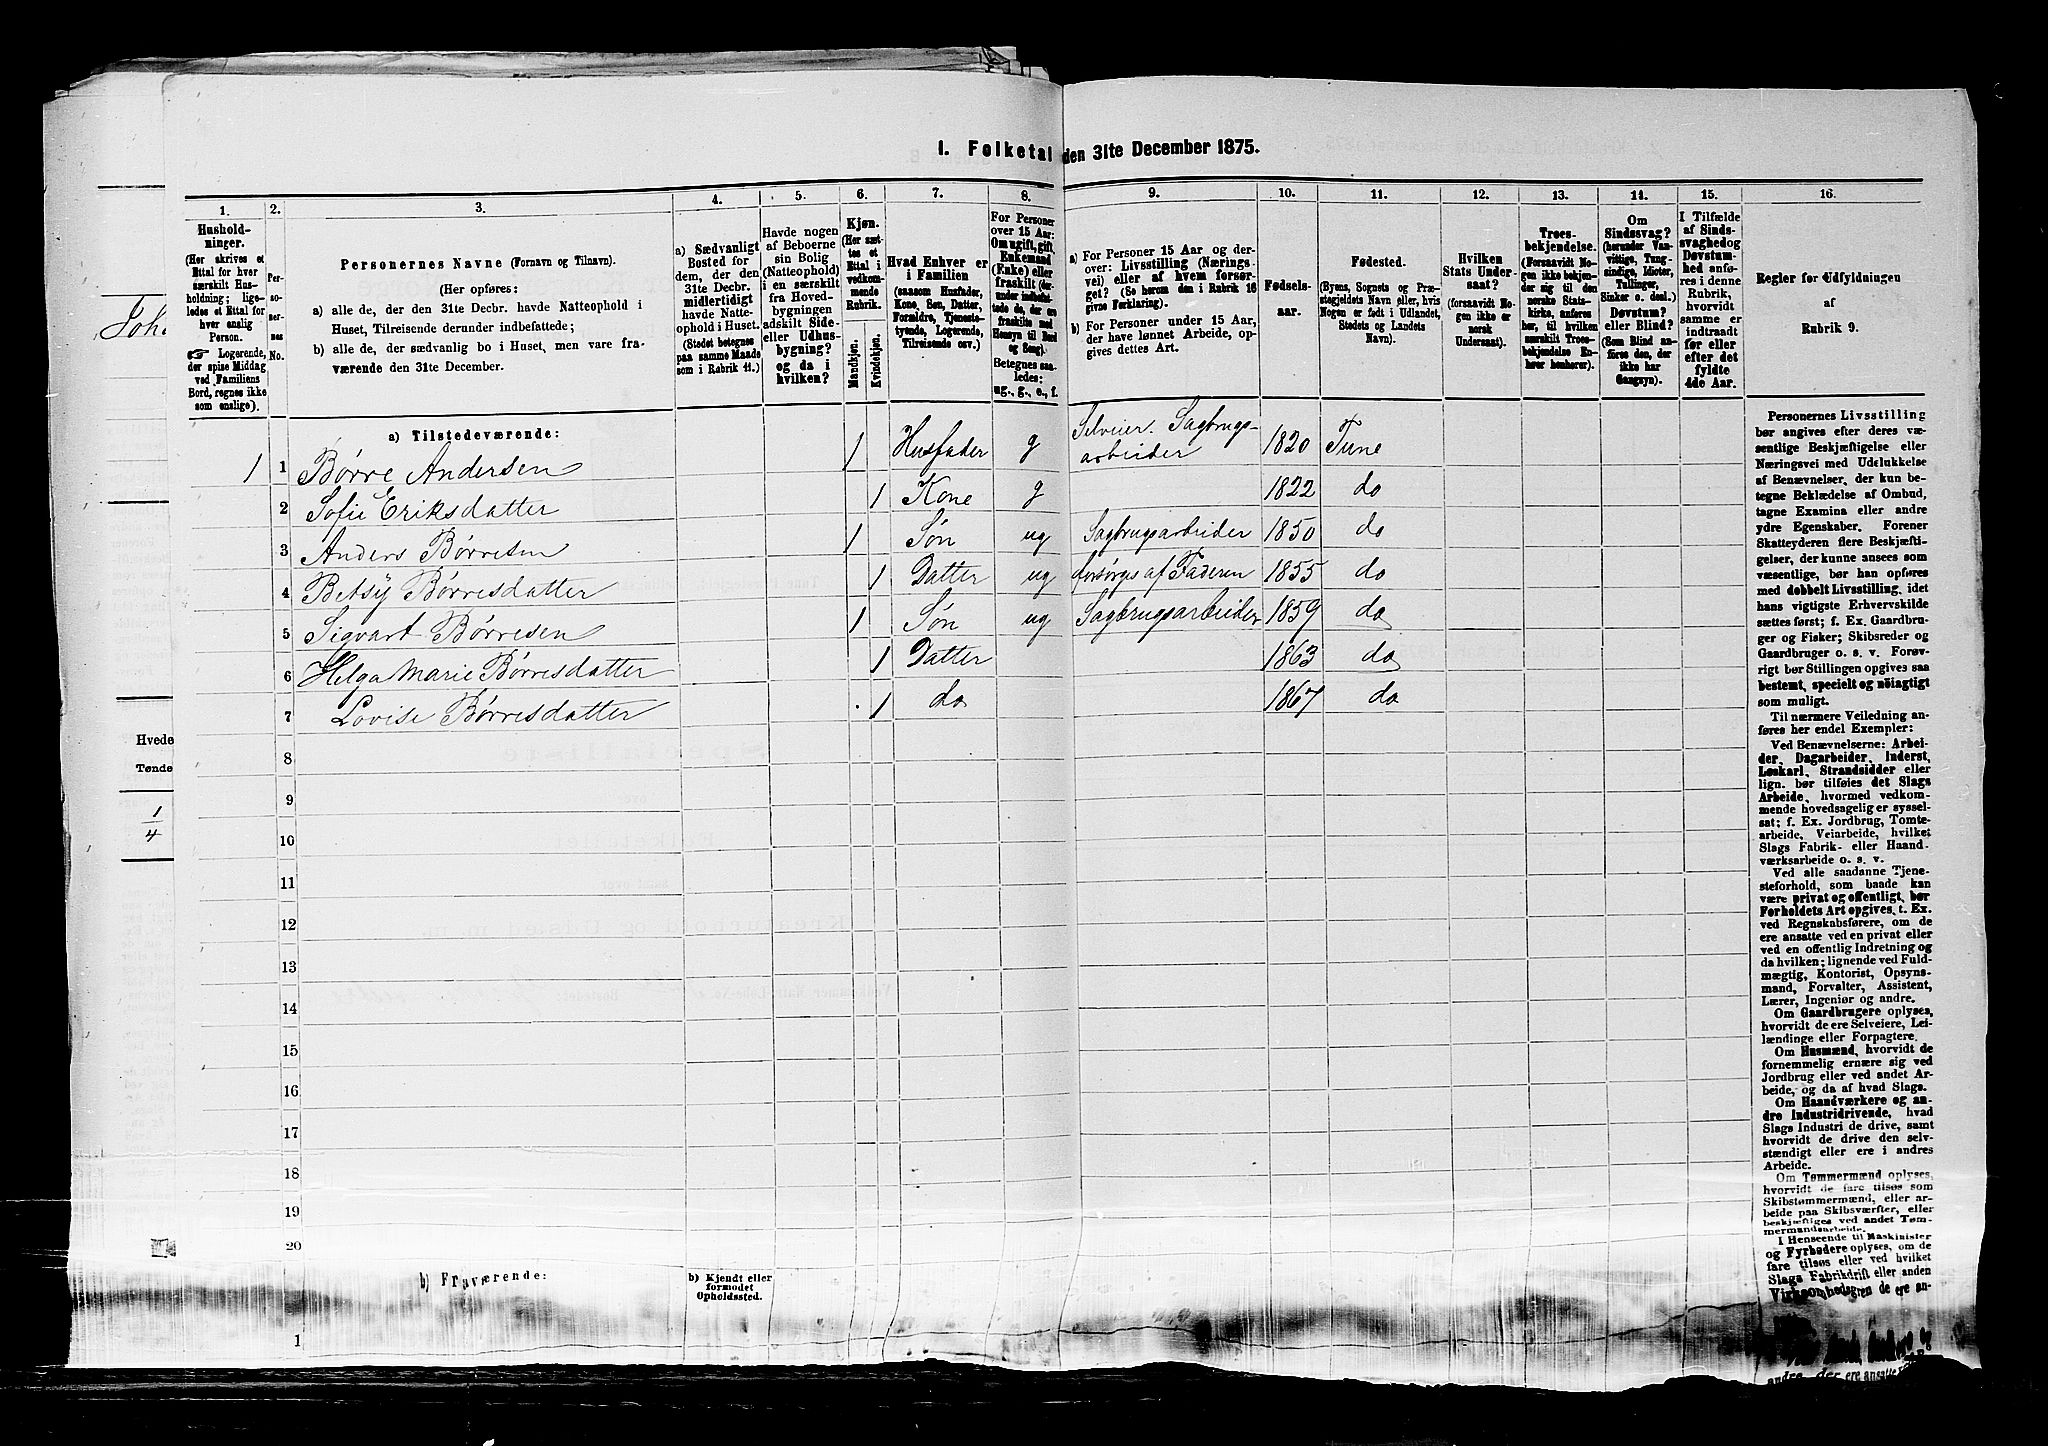 I. Folketal den 31te December 1875.
1. 2. 3. 4. 5. 6. 7. 8. 9. 10. 11. 12. 13. 14. 15. 16.
Hushold-
ninger.
(Her skrives et
Ettal for hver
særskilt Hus-
holdning; lige-
ledes et Ettal for
hver enslig
Person.
☞ Logerende,
der spise Middag
ved Familiens
Bord, regnes ikke
som enslige).
Per-
so-
ner-
nes
No.
Personernes Navne (Fornavn og Tilnavn).
(Her opføres:
a) alle de, der den 31te Decbr. havde Natteophold i
Huset, Tilreisende derunder indbefattede;
b) alle de, der sædvanlig bo i Huset, men vare fra-
værende den 31te December.
a) Sædvanligt
Bosted for
dem, der den
31te Decbr.
midlertidigt
havde Natte-
ophold i Huset.
(Stedet betegnes
paa samme Maade
som i Rubrik 11.)
Havde nogen
af Beboerne
sin Bolig
(Natteophold)
i en særskilt
fra Hoved-
bygningen
adskilt Side-
eller Udhus-
bygning?
og da i
hvilken?
Kjøn.
(Her sæt-
tes et
Ettal i
vedkom-
mende
Rubrik.
Mandkjøn.
Kvindekjøn.
Hvad Enhver er
i Familien
(saasom Husfader,
Kone, Søn, Datter,
Forældre, Tjeneste-
tyende, Logerende,
Tilreisende osv.)
For Personer
over 15 Aar:
Om ugift, gift,
Enkemand
(Enke) eller
fraskilt (der-
under indbefat-
tede de, der ere
fraskilte med
Hensyn til Bord
og Seng).
Betegnes saa-
ledes:
ug., g., e., f.
a) For Personer 15 Aar og der-
over: Livsstilling (Nærings-
vei) eller af hvem forsør-
get? (Se herom den i Rubrik 16
givne Forklaring).
b) For Personer under 15 Aar,
der have lønnet Arbeide, op-
gives dettes Art.
Fødsels-
aar.
Fødested.
(Byens, Sognets og Præ-
stegjeldets Navn eller, hvis
Nogen er født i Udlandet,
Stedets og Landets
Navn).
Hvilken
Stats Under-
saat?
(forsaavidt No-
gen ikke er
norsk
Undersaat).
Troes-
bekjendelse.
(Forsaavidt No-
gen ikke bekjen-
der sig til den
norske Stats-
kirke, anføres
her, til hvilken
særskilt Troes-
bekjendelse En-
hver henhører).
Om
Sindssvag?
(herunder Van-
vittige, Tung-
sindige, Idioter,
Tullinger,
Sinker o. desl.)
Døvstum?
eller Blind?
(Som Blind an-
føres den, der
ikke har
Gangsyn).
I Tilfælde
af Sinds-
svaghed og
Døvstum-
hed anfø-
res i denne
Rubrik,
hvorvidt
samme er
indtraadt
før eller
efter det
fyldte
4de Aar.
Regler for Udfyldningen
af
Rubrik 9.
a) Tilstedeværende:
1 1 Børre Andersen 1 Husfader g Selveier. Sagbrugs-
arbeider 1820 Tune
2 Sofie Eriksdatter 1 Kone g 1822 do
3 Anders Børresen 1 Søn ug Sagbrugsarbeider 1850 do
4 Betsy Børresdatter 1 Datter ug forsørges af Faderen 1855 do
5 Sigvart Børresen 1 Søn ug Sagbrugsarbeider 1859 do
6 Helga Marie Børresdatter 1 Datter 1863 do
7 Lovise Børresdatter 1 do 1867 do
8
9
10
11
12
13
14
15
16
17
18
19
20
b) Fraværende:
b) Kjendt eller
formodet
Opholdssted.
1
Personernes Livsstilling
bør angives efter deres væ-
sentlige Beskjæftigelse eller
Næringsvei med Udelukkelse
af Benævnelser, der kun be-
tegne Beklædelse af Ombud,
tagne Examina eller andre
ydre Egenskaber. Forener
Skatteyderen flere Beskjæfti-
gelser, der kunne ansees som
væsentlige, bør han opføres
med dobbelt Livsstilling, idet
hans vigtigste Erhvervskilde
sættes først; f. Ex. Gaardbru-
ger og Fisker; Skibsreder og
Gaardbruger o. s. v. Forøv-
rigt bør Stillingen opgives saa
bestemt, specielt og nøiagtigt
som muligt.
Til nærmere Veiledning an-
føres her endel Exempler:
Ved Benævnelserne: Arbei-
der, Dagarbeider, Inderst,
Løskarl, Strandsidder eller
lign. bør tilføies det Slags
Arbeide, hvormed vedkom-
mende hovedsagelig er syssel-
sat; f. Ex. Jordbrug, Tomte-
arbeide, Veiarbeide, hvilket
Slags Fabrik- eller Haand-
værksarbeide o. s. v.
Ved alle saadanne Tjene-
steforhold, som baade kan
være privat og offentligt, bør
Forholdets Art opgives, t. Ex.
ved Regnskabsførere, om de
ere ansatte ved en privat eller
ved en offentlig Indretning og
da hvilken; lignende ved Fuld-
mægtig, Kontorist, Opsyns-
mand, Forvalter, Assistent,
Lærer, Ingeniør og andre.
Om Gaardbrugere oplyses,
hvorvidt de ere Selveiere, Lei-
lændinge eller Forpagtere.
Om Husmænd, hvorvidt de
fornemmelig ernære sig ved
Jordbrug eller ved andet Ar-
beide, og da af hvad Slags.
Om Haandværkere og an-
dre Industridrivende, hvad
Slags Industri de drive, samt
hvorvidt de drive den selv-
stændigt eller ere i andres
Arbeide.
Om Tømmermænd oplyses,
hvorvidt de fare tilsøs som
Skibstømmermænd, eller ar-
beide paa Skibsværfter, eller
beskjæftiges ved andet Tøm-
mermandsarbeide.
I Henseende til Maskinister
og Fyrbødere oplyses, om de
fare tilsøs eller ved hvilket
Slags Fabrikdrift eller anden
Virksomhedsgren de ere an-
Hvede
Tønde
1/4